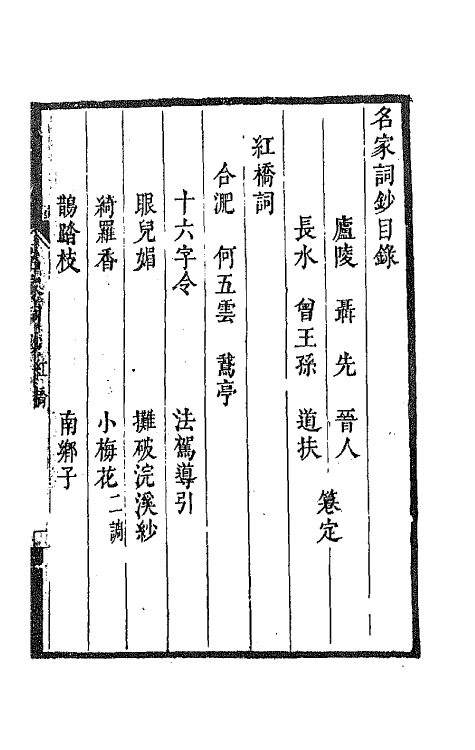 名家詞鈔目錄
廬陵 聶先 晉人
長水 曾王孫 道扶
篹定
紅橋詞
合淝 何五雲 鶴亭
十六字令 法駕導引
眼兒媚 攤破浣溪紗
綺羅香 小梅花二調
鵲踏枝 南鄉子